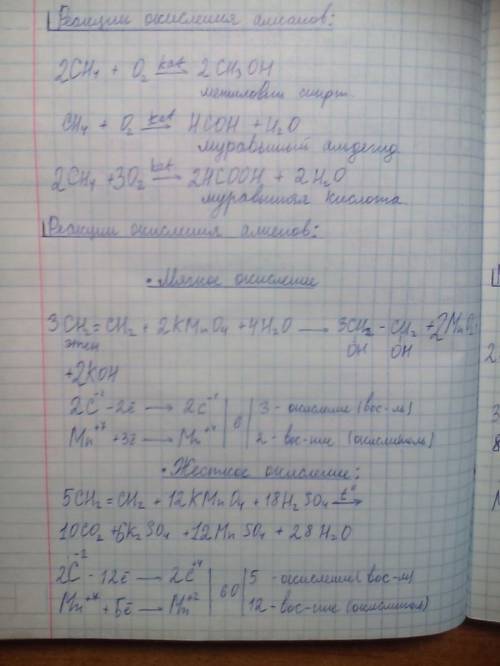 Реакции окисления алканов:
2CH₄ + O₂ —kat→ 2CH₃OH
метиловый спирт
CH₄ + O₂ —kat→ HCOH + H₂O
муравьиный альдегид
2CH₄ + 3O₂ —kat→ 2HCOOH + 2H₂O
муравьиная кислота
Реакции окисления алкенов:
• Мягкое окисление
3CH₂=CH₂ + 2KMnO₄ + 4H₂O → 3CH₂ - CH₂ + 2MnO₂
этен OH OH
+2KOH
2C⁻² - 2ē → 2C⁻¹ | 6 | 3 - окисление (вос-ль)
Mn⁺⁷ + 3ē → Mn⁺⁴ | 2 - вос-ние (окислитель)
• Жёсткое окисление:
5CH₂=CH₂ + 12KMnO₄ + 18H₂SO₄ —t°→
10CO₂ + 6K₂SO₄ + 12MnSO₄ + 28H₂O
2C⁻² - 12ē → 2C⁺⁴ | 60 | 5 - окисление (вос-ль)
Mn⁺⁷ + 5ē → Mn⁺² | 12 - вос-ние (окислитель)